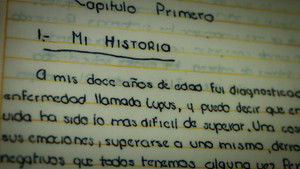 Capitulo Primero
1.- MI HISTORIA
A mis doce años de edad fui diagnostica
enfermedad llamada Lupus, y puedo decir que en
vida ha sido lo mas dificil de superar. Una cos
sus emociones, superarse a uno mismo, derro
negativos que todos tenemos alguna vez. Per